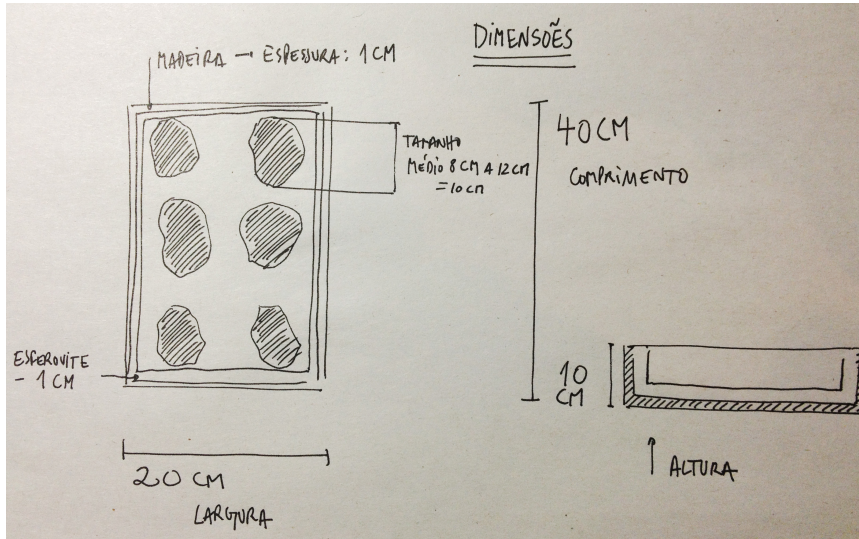 DIMENSÕES
MADEIRA → ESPESSURA: 1 CM
TAMANHO
MÉDIO 8 CM A 12 CM
= 10 CM
40 CM
COMPRIMENTO
ESFEROVITE
- 1 CM
10
CM
20 CM
LARGURA
ALTURA